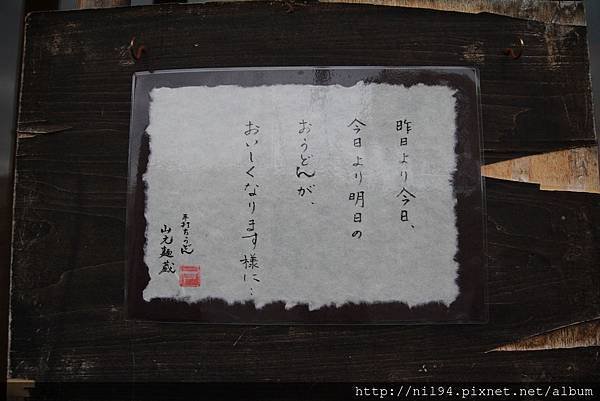 昨日より今日、
今日より明日の
おうどんが、
おいしくなります様に…
手打ちうどん
山元麺蔵
http://nil94.pixnet.net/album